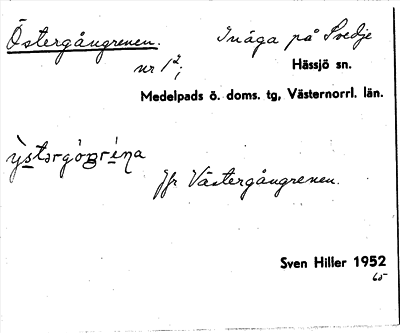 Östergångrenen. Inäga på Svedje
nr 1²;
Hässjö sn.
Medelpads ö. doms. tg, Västernorrl. län.
Jfr Västergångrenen.
Sven Hiller 1952
65